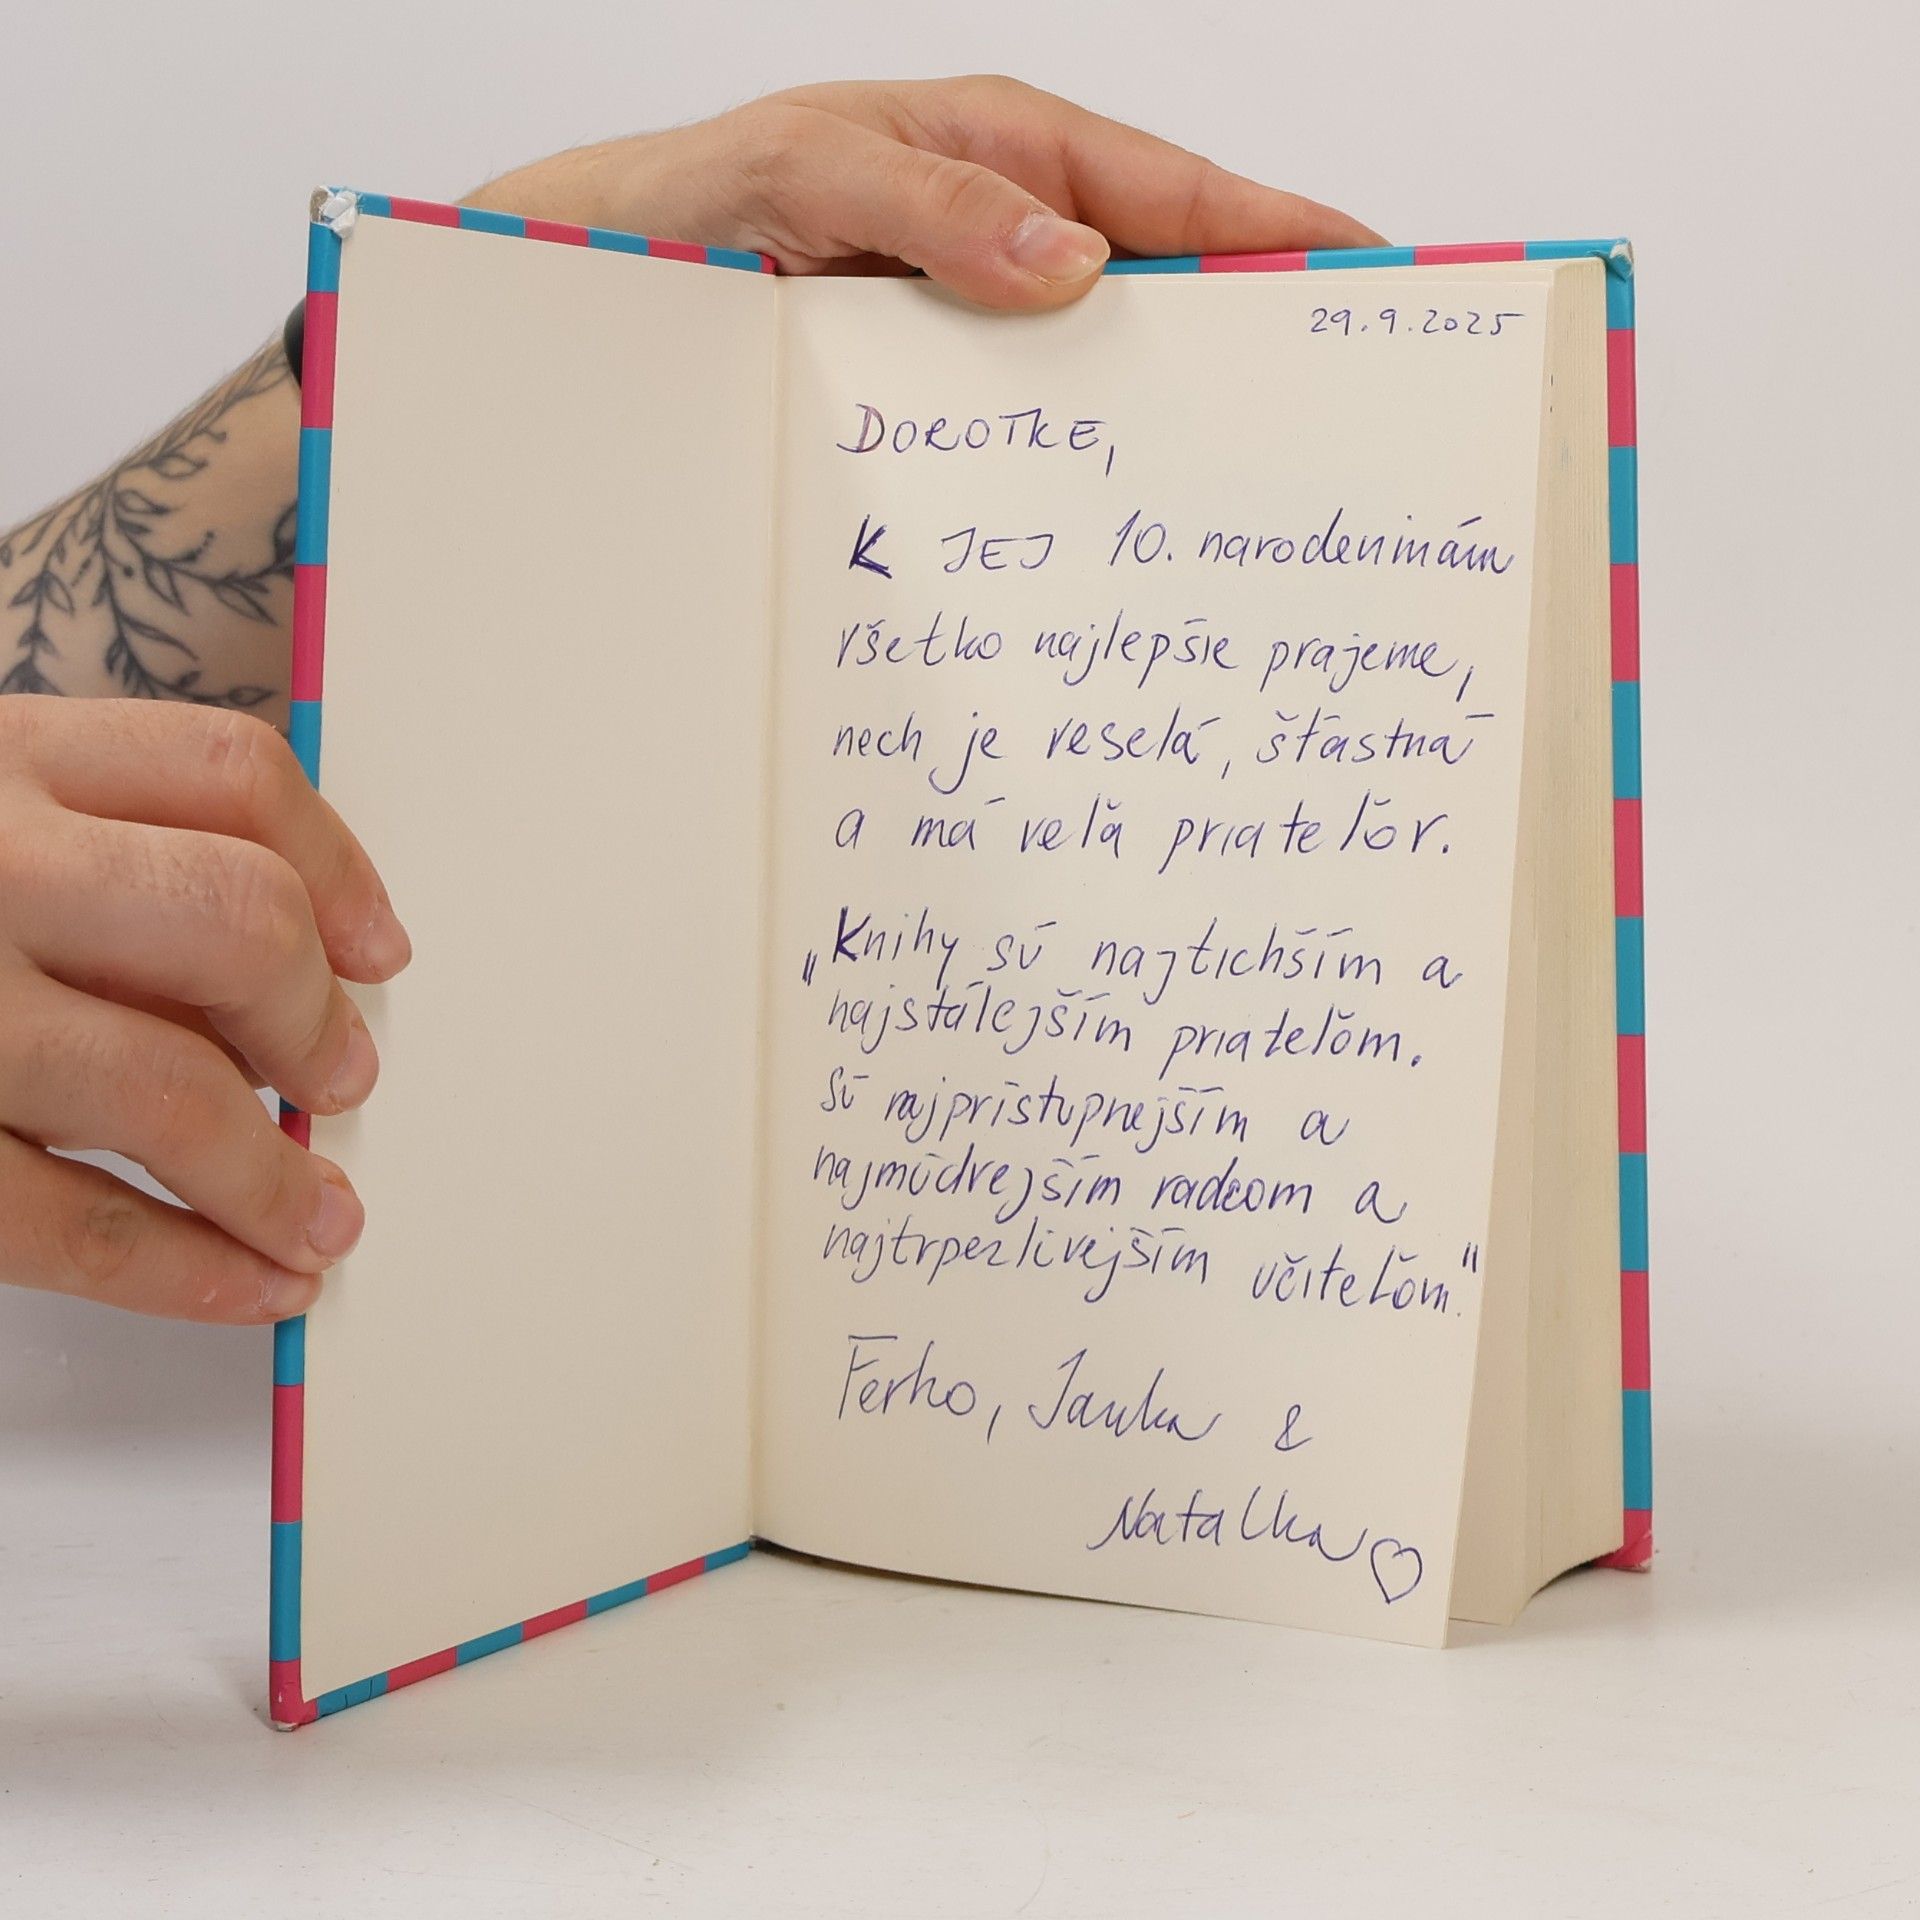 29.9.2025
DOROTKE,
K JEJ 10. narodeninám
všetko najlepšie prajeme,
nech je veselá, šťastná
a má veľa priateľov.
„Knihy sú najtichším a
najstálejším priateľom.
Sú najprístupnejším a
najmúdrejším radcom a
najtrpezlivejším učiteľom."
Ferko, Janka &
Natalka ♡